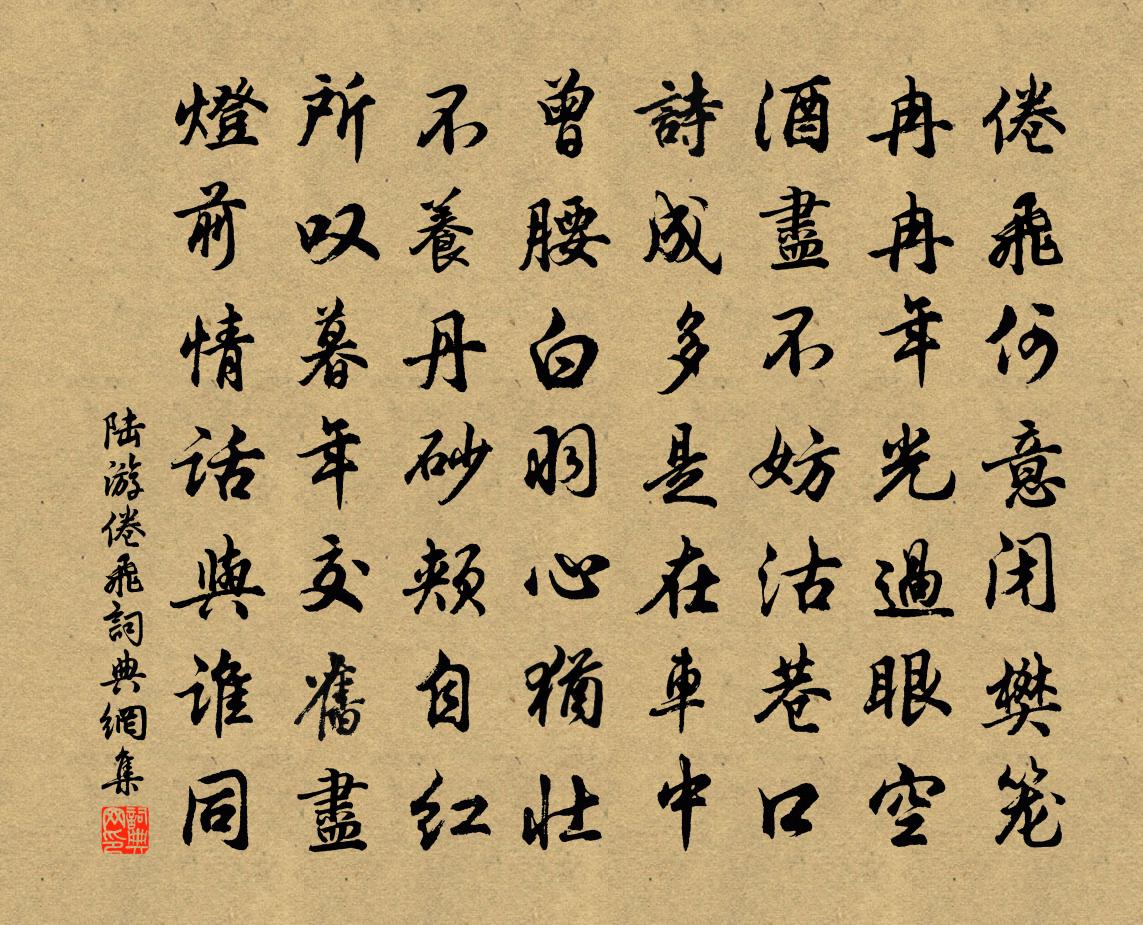 倦飛何意閉樊笼
冉冉年光過眼空
酒盡不妨沽巷口
詩成多是在車中
曾腰白羽心猶壯
不養丹砂頰自红
所叹暮年交舊盡
燈前情話與谁同
陆游倦飛詞典網集
詞典网印